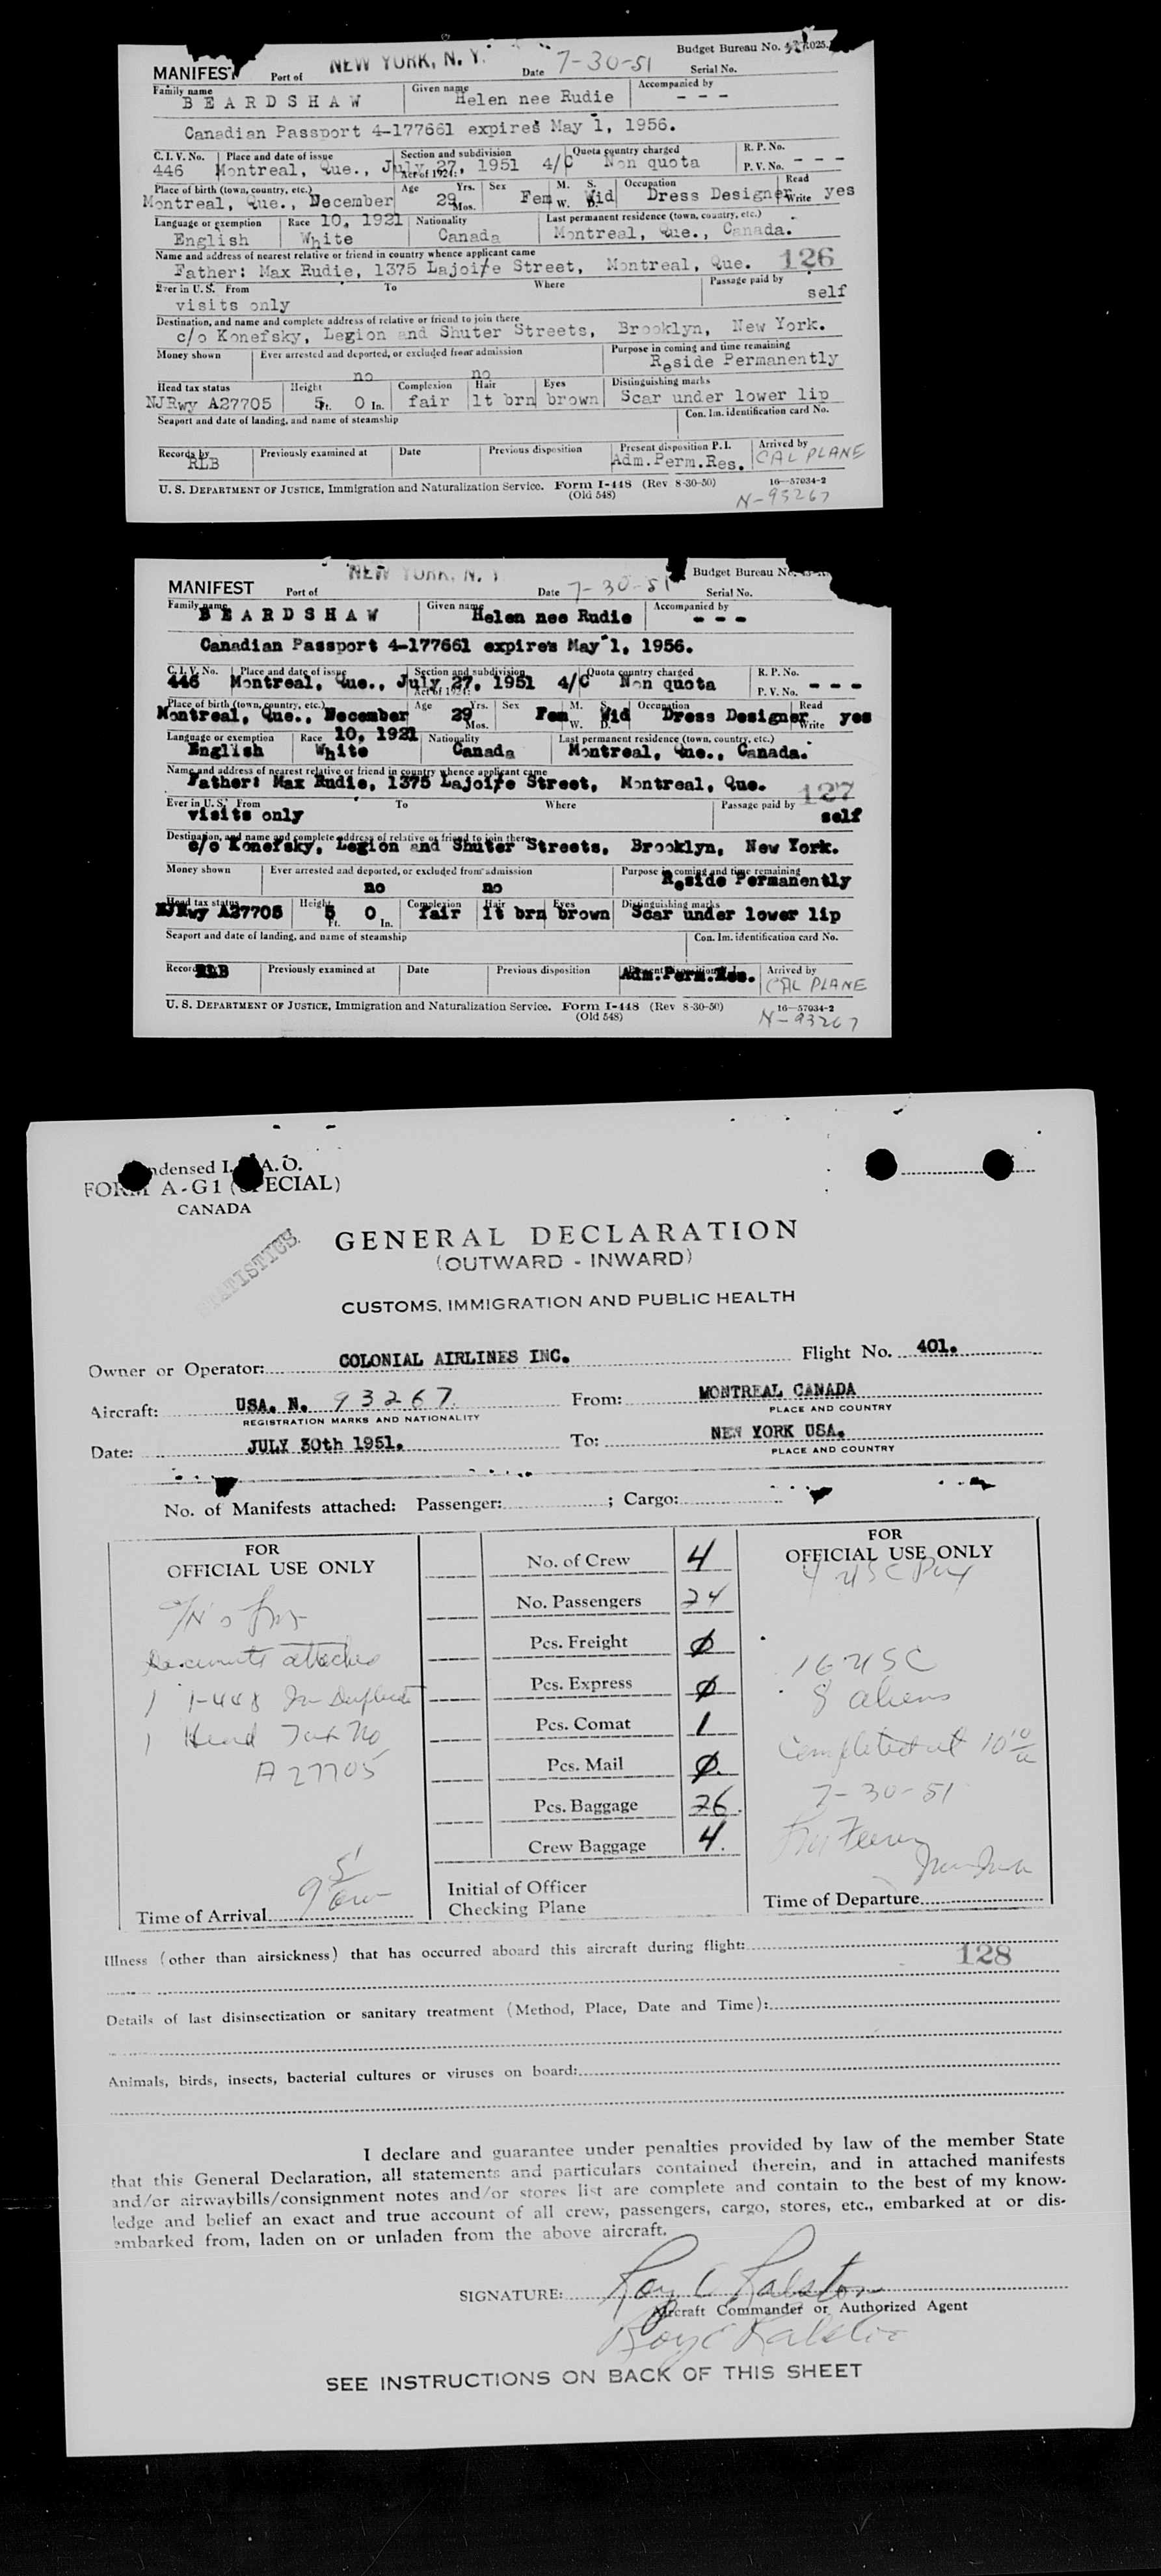 NEW YORK, N. Y.
Budget Bureau No.
MANIFEST Port of Date 7-30-51 Serial No.
Family name Given name Accompanied by
BEARDSHAW Helen nee Rudie - - -
Canadian Passport 4-177661 expires May 1, 1956.
C. I. V. No. Place and date of issue Section and subdivision Quota country charged R. P. No.
446 Montreal, Que., July 27, 1951 4/C Non quota
Act of 1924: P. V. No. - - -
Place of birth (town, country, etc.) Age Yrs. Sex M. S. Occupation Read
Montreal, Que., December 29 Fem Wid Dress Designer yes
Mos. W. D. Write
Language or exemption Race 10, 1921 Nationality Last permanent residence (town, country, etc.)
English White Canada Montreal, Que., Canada.
Name and address of nearest relative or friend in country whence applicant came
Father: Max Rudie, 1375 Lajoife Street, Montreal, Que. 126
Ever in U. S. From To Where Passage paid by
visits only self
Destination, and name and complete address of relative or friend to join there
c/o Konefsky, Legion and Shuter Streets, Brooklyn, New York.
Money shown Ever arrested and deported, or excluded from admission Purpose in coming and time remaining
no no Reside Permanently
Head tax status Height Complexion Hair Eyes Distinguishing marks
NJRwy A27705 5 Ft. 0 In. fair lt brn brown Scar under lower lip
Seaport and date of landing, and name of steamship Con. Im. identification card No.
Records by Previously examined at Date Previous disposition Present disposition P.I. Arrived by
RLB Adm.Perm.Res. CAL PLANE
U. S. DEPARTMENT OF JUSTICE, Immigration and Naturalization Service. Form I-448 (Rev 8-30-50) 16—57034-2
(Old 548) N-93267
NEW YORK, N. Y.
Budget Bureau No.
MANIFEST Port of Date 7-30-51 Serial No.
Family name Given name Accompanied by
BEARDSHAW Helen nee Rudie - - -
Canadian Passport 4-177661 expires May 1, 1956.
C. I. V. No. Place and date of issue Section and subdivision Quota country charged R. P. No.
446 Montreal, Que., July 27, 1951 4/C Non quota
Act of 1924: P. V. No. - - -
Place of birth (town, country, etc.) Age Yrs. Sex M. S. Occupation Read
Montreal, Que., December 29 Fem Wid Dress Designer yes
Mos. W. D. Write
Language or exemption Race 10, 1921 Nationality Last permanent residence (town, country, etc.)
English White Canada Montreal, Que., Canada.
Name and address of nearest relative or friend in country whence applicant came
Father: Max Rudie, 1375 Lajoife Street, Montreal, Que. 127
Ever in U. S. From To Where Passage paid by
visits only self
Destination, and name and complete address of relative or friend to join there
c/o Konefsky, Legion and Shuter Streets, Brooklyn, New York.
Money shown Ever arrested and deported, or excluded from admission Purpose in coming and time remaining
no no Reside Permanently
Head tax status Height Complexion Hair Eyes Distinguishing marks
NJRwy A27705 5 Ft. 0 In. fair lt brn brown Scar under lower lip
Seaport and date of landing, and name of steamship Con. Im. identification card No.
Records Previously examined at Date Previous disposition Arrived by
RLB Adm.Perm.Res. CAL PLANE
U. S. DEPARTMENT OF JUSTICE, Immigration and Naturalization Service. Form I-448 (Rev 8-30-50) 16—57034-2
(Old 548) N-93267
FORM A-G1 (SPECIAL)
CANADA
STATISTICS
GENERAL DECLARATION
(OUTWARD - INWARD)
CUSTOMS, IMMIGRATION AND PUBLIC HEALTH
Owner or Operator: COLONIAL AIRLINES INC. Flight No. 401.
Aircraft: USA. N. 93267. From: MONTREAL CANADA
REGISTRATION MARKS AND NATIONALITY PLACE AND COUNTRY
Date: JULY 30th 1951. To: NEW YORK USA.
PLACE AND COUNTRY
No. of Manifests attached: Passenger: ; Cargo:
FOR OFFICIAL USE ONLY
documents attached
1 I-448 In Duplicate
1 Head Tax No
A 27705
Time of Arrival
No. of Crew 4
No. Passengers 24
Pcs. Freight 0
Pcs. Express 0
Pcs. Comat 1
Pcs. Mail 0.
Pcs. Baggage 26.
Crew Baggage 4.
Initial of Officer
Checking Plane
FOR
OFFICIAL USE ONLY
4 USC
16 USC
8 aliens
Completed at 10 10/a
7-30-51
Time of Departure
Illness (other than airsickness) that has occurred aboard this aircraft during flight:
128
Details of last disinsectization or sanitary treatment (Method, Place, Date and Time):
Animals, birds, insects, bacterial cultures or viruses on board:
I declare and guarantee under penalties provided by law of the member State
that this General Declaration, all statements and particulars contained therein, and in attached manifests
and/or airwaybills/consignment notes and/or stores list are complete and contain to the best of my know-
ledge and belief an exact and true account of all crew, passengers, cargo, stores, etc., embarked at or dis-
embarked from, laden on or unladen from the above aircraft.
SIGNATURE: Roy C Ralston
Aircraft Commander or Authorized Agent
Roy C Ralston
SEE INSTRUCTIONS ON BACK OF THIS SHEET